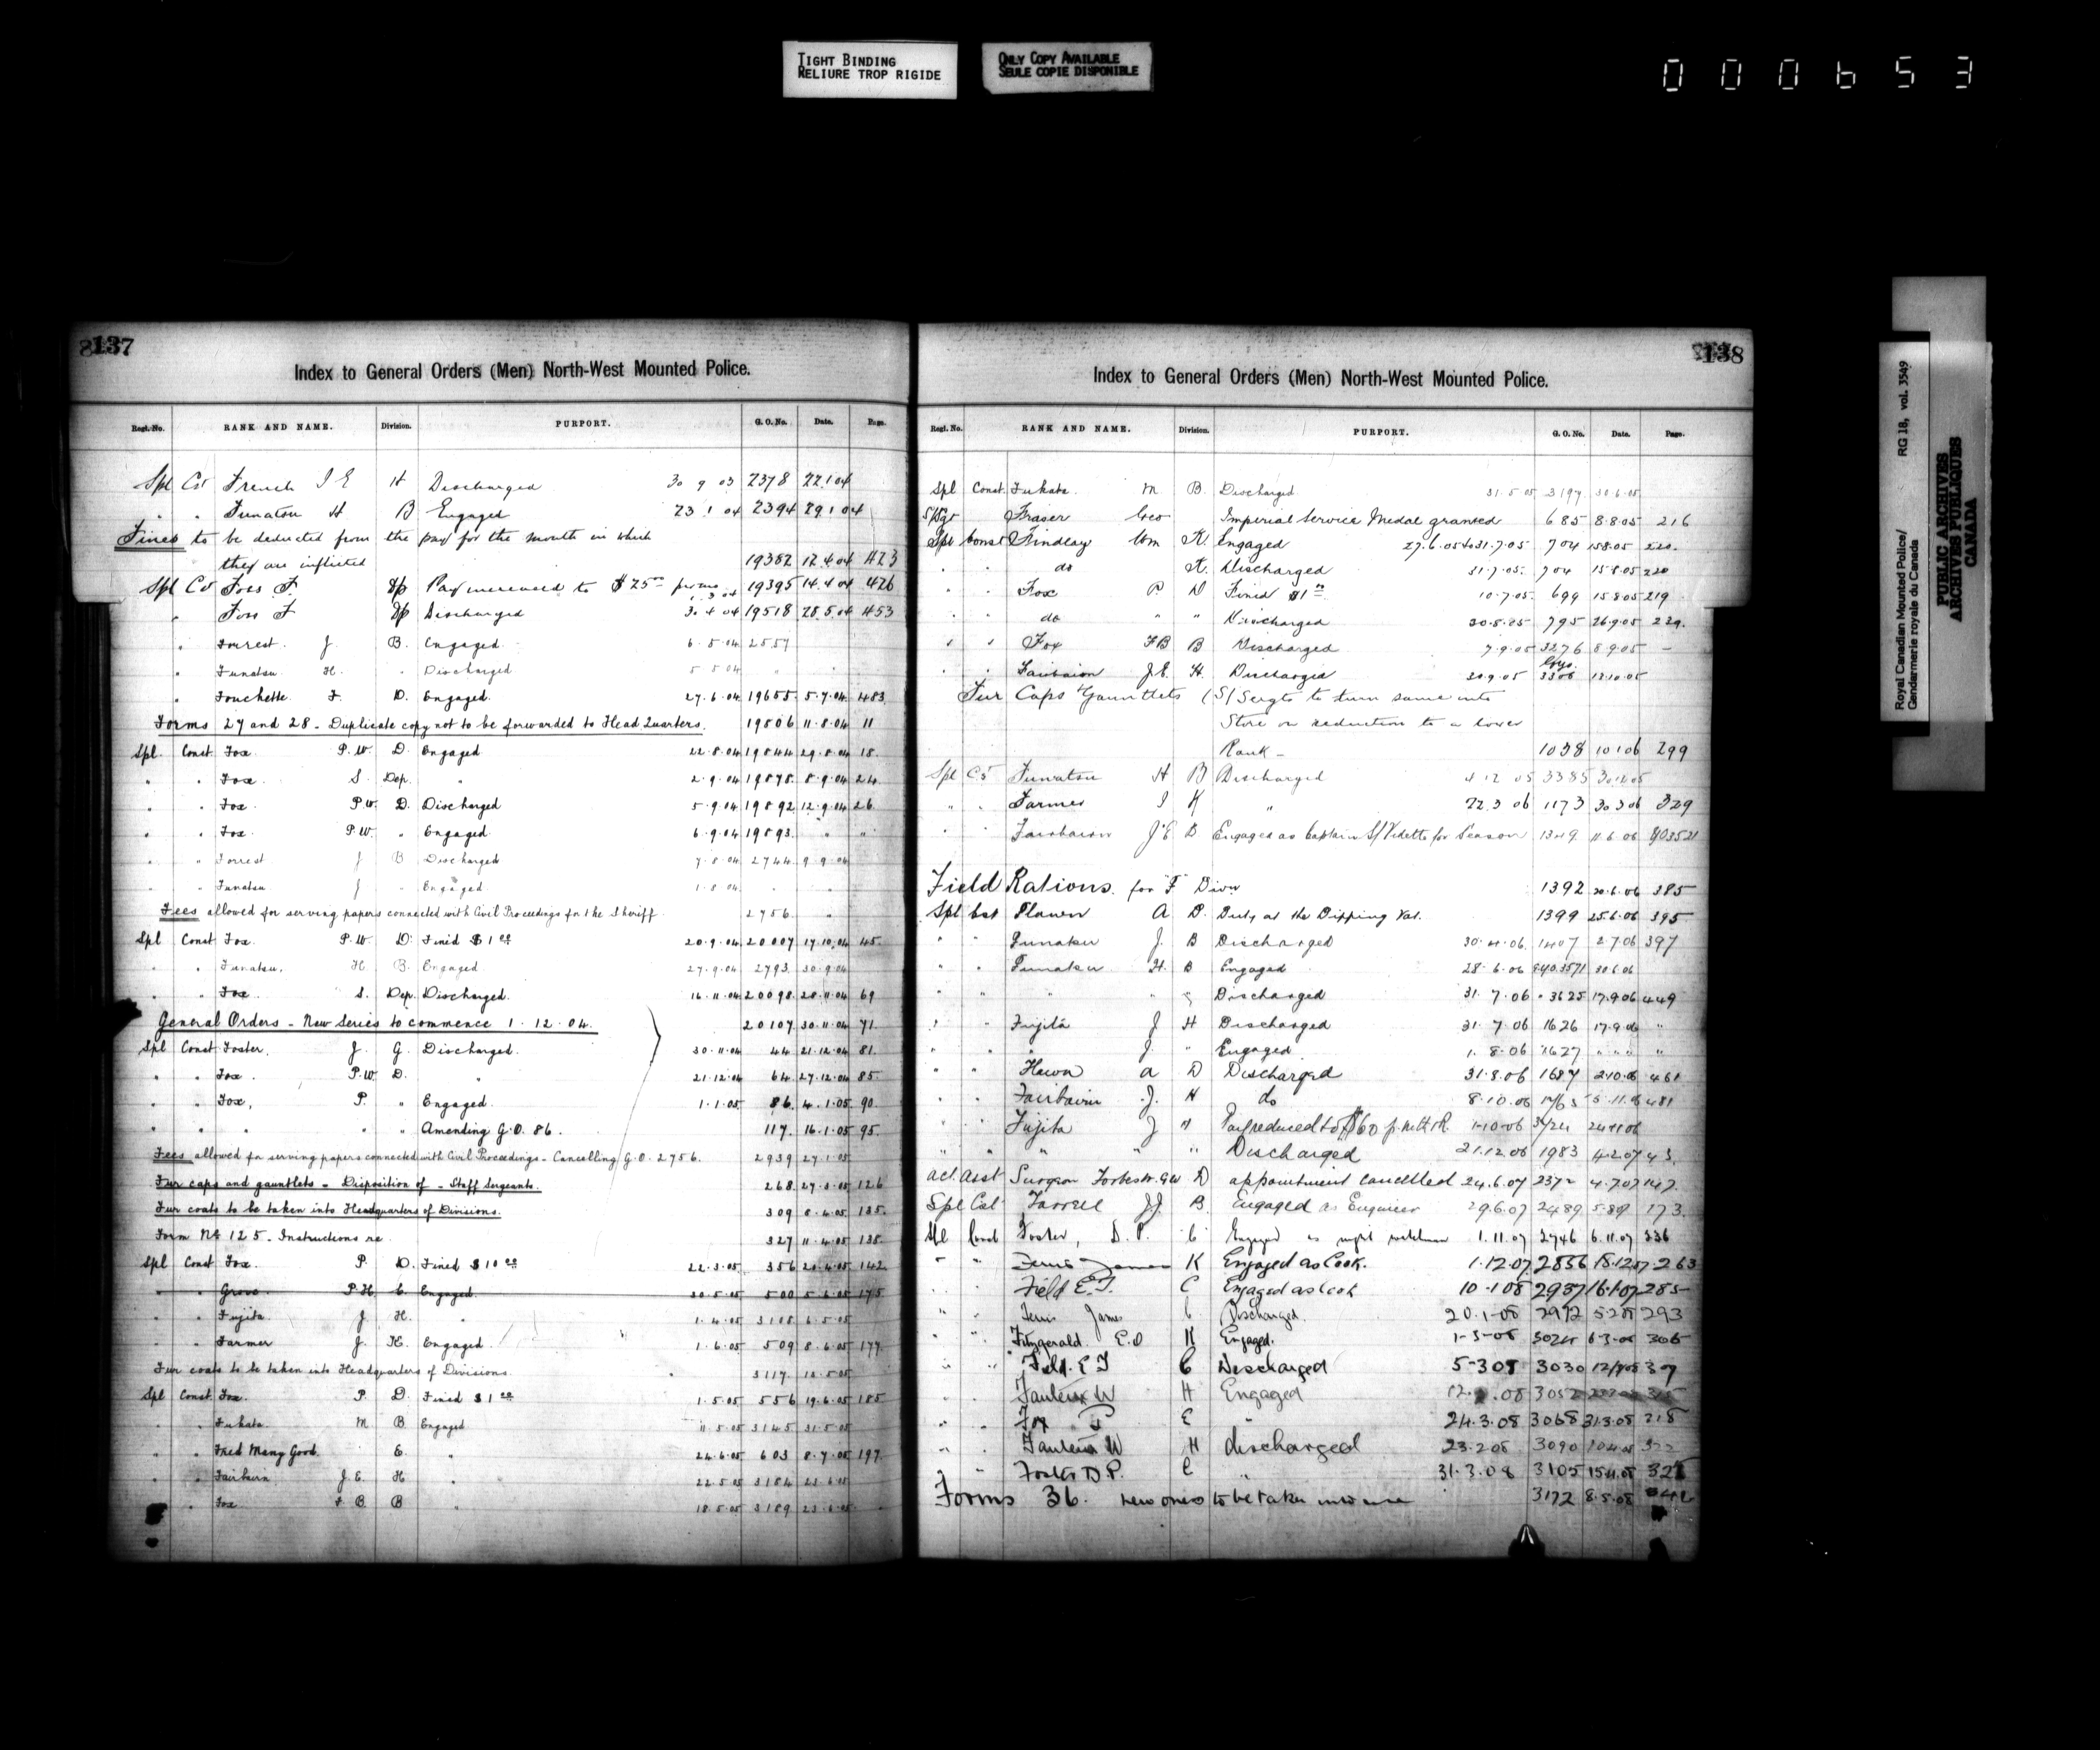 TIGHT BINDING
RELIURE TROP RIGIDE
ONLY COPY AVAILABLE
SEULE COPIE DISPONIBLE
000653
137
Index to General Orders (Men) North-West Mounted Police.
Regl. No. RANK AND NAME. Division. PURPORT. G. O. No. Date. Page.
Spl Cst French J E H Discharged 30 9 03 2378 22.1 04
" " Funatsu H B Engaged 23 1 04 2394 29 1 04
Fines to be deducted from the pay for the month in which
they are inflicted 19382 12.4 04 423
Spl Cst Foss F. Dp Pay increased to $25 00 per mo 1 3 04 19395 14.4 04 426
" Foss F Dp Discharged 30 4 04 19518 28.5 04 453
" Forrest. J. B. Engaged. 6.5.04 2557
" Funatsu H. " Discharged 5 5 04 "
" Fouchette F. D. Engaged. 27.6.04 19655 5.7.04 483
Forms 27 and 28 - Duplicate copy not to be forwarded to Head Quarters. 19806 11.8.04 11
Spl. Const. Fox P. W. D. Engaged 22.8.04 19844 29.8.04 18.
" " Fox. S. Dep. " 2.9.04 19878. 8.9.04 24.
" " Fox. P W. D. Discharged 5.9.04 19892 12.9.04 26.
" " Fox. P W. " Engaged 6.9.04 19893. " "
" " Forrest J B Discharged 7.8.04 2744 9.9.04
" " Funatsu J " Engaged 1.8.04 " "
Fees allowed for serving papers connected with Civil Proceedings for the Sheriff 2756. "
Spl Const. Fox. P. W. D. Fined $1 00 20.9.04 20007 17.10.04 45.
" " Funatsu. H B. Engaged 27.9.04 2793 30.9.04
" " Fox. S. Dep. Discharged. 16.11.04 20098. 28.11.04 69
General Orders - New Series to commence 1.12.04. 20107 30.11.04 71
Spl Const. Foster. J. G. Discharged. 30.11.04 44 21.12.04 81.
" " Fox. P. W. D. " 21.12.04 64 27.12.04 85.
" " Fox, P. " Engaged. 1.1.05 86. 4.1.05 90.
" " " " " Amending G.O. 86. 117. 16.1.05 95.
Fees allowed for serving papers connected with Civil Proceedings - Cancelling G.O. 2756. 2939 27.1.05
Fur caps and gauntlets - Disposition of - Staff Sergeants. 268 27.3.05 126
Fur coats to be taken into Headquarters of Divisions. 309 8.4.05 135.
Form No 125. Instructions re 327 11.4.05 138.
Spl Const Fox. P. D. Fined $10 00 22.3.05 356 20.4.05 142
" " Grove. P. H. E. Engaged. 30.5.05 500 5.6.05 175
" " Fujita. J. H. " 1.4.05 3108 6.5.05
" " Farmer J. K. Engaged. 1.6.05 509 8.6.05 177.
Fur coats to be taken into Headquarters of Divisions. 3117. 15.5.05
Spl Const. Fox. P. D. Fined $1 00 1.5.05 556 19.6.05 185
" " Fukata. M. B Engaged 11.5.05 3145 31.5.05
" " Fred Many Good. E. " 24.6.05 603 8.7.05 197.
" " Fairbairn J. E. H " 22.5.05 3184 23.6.05
" " Fox F. B. B " 18.5.05 3189 23.6.05
138
Index to General Orders (Men) North-West Mounted Police.
Regl. No. RANK AND NAME. Division. PURPORT. G. O. No. Date. Page.
Spl Const. Fukata. M B. Discharged. 31.5.05 3197 30.6.05
S/Sgt Fraser Geo Imperial Service Medal granted 685 8.8.05 216
Spl Const Findlay Wm K. Engaged 27.6.05 to 31.7.05 704 15.8.05 220.
" " do K. Discharged 31.7.05. 704 15.8.05 220
" " Fox P D Fined $1 00 10.7.05. 699 15.8.05 219
" " do " " Discharged 30.8.05 795 26.9.05 239.
" " Fox F B B Discharged 7.9.05 3276 8.9.05 -
" " Fairbairn J. E. H. Discharged 30.9.05 3308 12.10.05
Fur Caps & Gauntlets (S/Sergts to turn same into
Store on reduction to a lower
Rank - 1038 10 1 06 299
Spl Cst Funatsu H B Discharged 4 12 05 3385 30.12.05
" " Farmer J K " 22.3 06 1173 30 3 06 329
" " Fairbairn J E B Engaged as Captain S/Vidette for Season 1349 11.6.06
Field Rations. for "F" Divn 1392 20.6.06 385
Spl Cst Flower A D. Duty at the Dipping Vat. 1399 25.6.06 395.
" " Funatsu J. B Discharged 30.4.06 1407 2.7.06 397
" " Funatsu H. B Engaged 28.6.06 3571 30.6.06
" " " " " Discharged 31.7.06 3625 17.9.06 449
" " Fujita J H Discharged 31.7.06 1626 17.9.06 "
" " " J. " Engaged 1.8.06 1627 " " "
" " A D Discharged 31.8.06 1687 2.10.06 461
" " Fairbairn J. H do 8.10.06 1765 5.11.06 481
" " Fujita J H Pay reduced to $60 p. mth 1.10.06 24.11.06
" " " " " Discharged 21.12.06 1983 4.2.07 43.
Act. Asst Surgeon Forbes W. G. W D appointment cancelled 24.6.07 2372 4.7.07 147.
Spl Cst Farrell J J. B. Engaged as Engineer 29.6.07 2489 5.8.07 173.
Spl Const Foster, D. P. C Engaged as night watchman 1.11.07 2746 6.11.07 236
" " Ferris James K Engaged as Cook. 1.12.07 2856 18.12.07 263
" " Field E. T. C Engaged as Cook 10.1.08 2937 285
" " Ferris James C Discharged. 20.1.08 2972 5.2.08 293
" " Fitzgerald. E. D K Engaged. 1-3-08 3024 6.3.08 306
" " Field. E T C Discharged 5-3 08 3030 307
" " H Engaged .08 3052
" " Fox P E " 24.3.08 3068 31.3.08 318
" " H discharged 23.2.08 3090
" " Foster D. P. C " 31.3.08 3105 15.4.08 325
Forms 36. new ones to be taken into use 3172 8.5.08 342
Royal Canadian Mounted Police/ RG 18, vol. 3549
Gendarmerie royale du Canada
PUBLIC ARCHIVES
ARCHIVES PUBLIQUES
CANADA